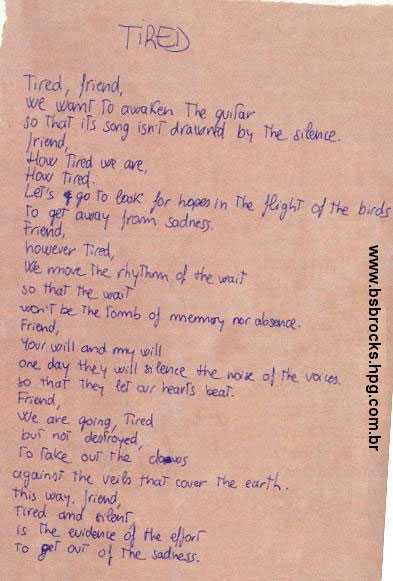 TIRED
Tired, friend,
we want to awaken the guitar
so that its song isn't drawned by the silence.
friend,
How tired we are,
How tired.
Let's go to look for hopes in the flight of the birds
to get away from sadness.
Friend,
however tired,
We move the rhythm of the wait
so that the wait
won't be the tomb of memory nor absence.
Friend,
your will and my will
one day they will silence the noise of the voices.
so that they let our hearts beat.
Friend,
We are going, tired
but not destroyed,
to take out the
against the veils that cover the earth.
this way, friend,
tired and silent
is the evidence of the effort
to get out of the sadness.
www.bsbrocks.hpg.com.br